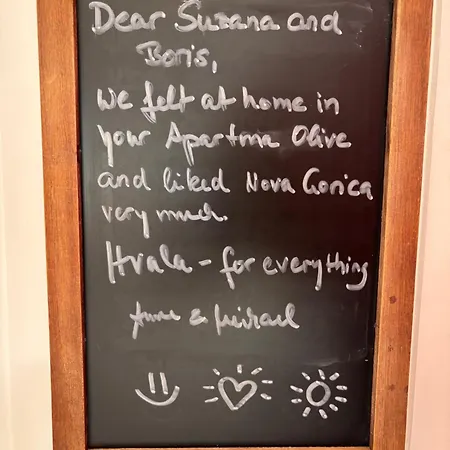 Dear Suzana and
Boris,
We felt at home in
your Apartma Olive
and liked Nova Gorica
very much.
Hvala - for everything
&